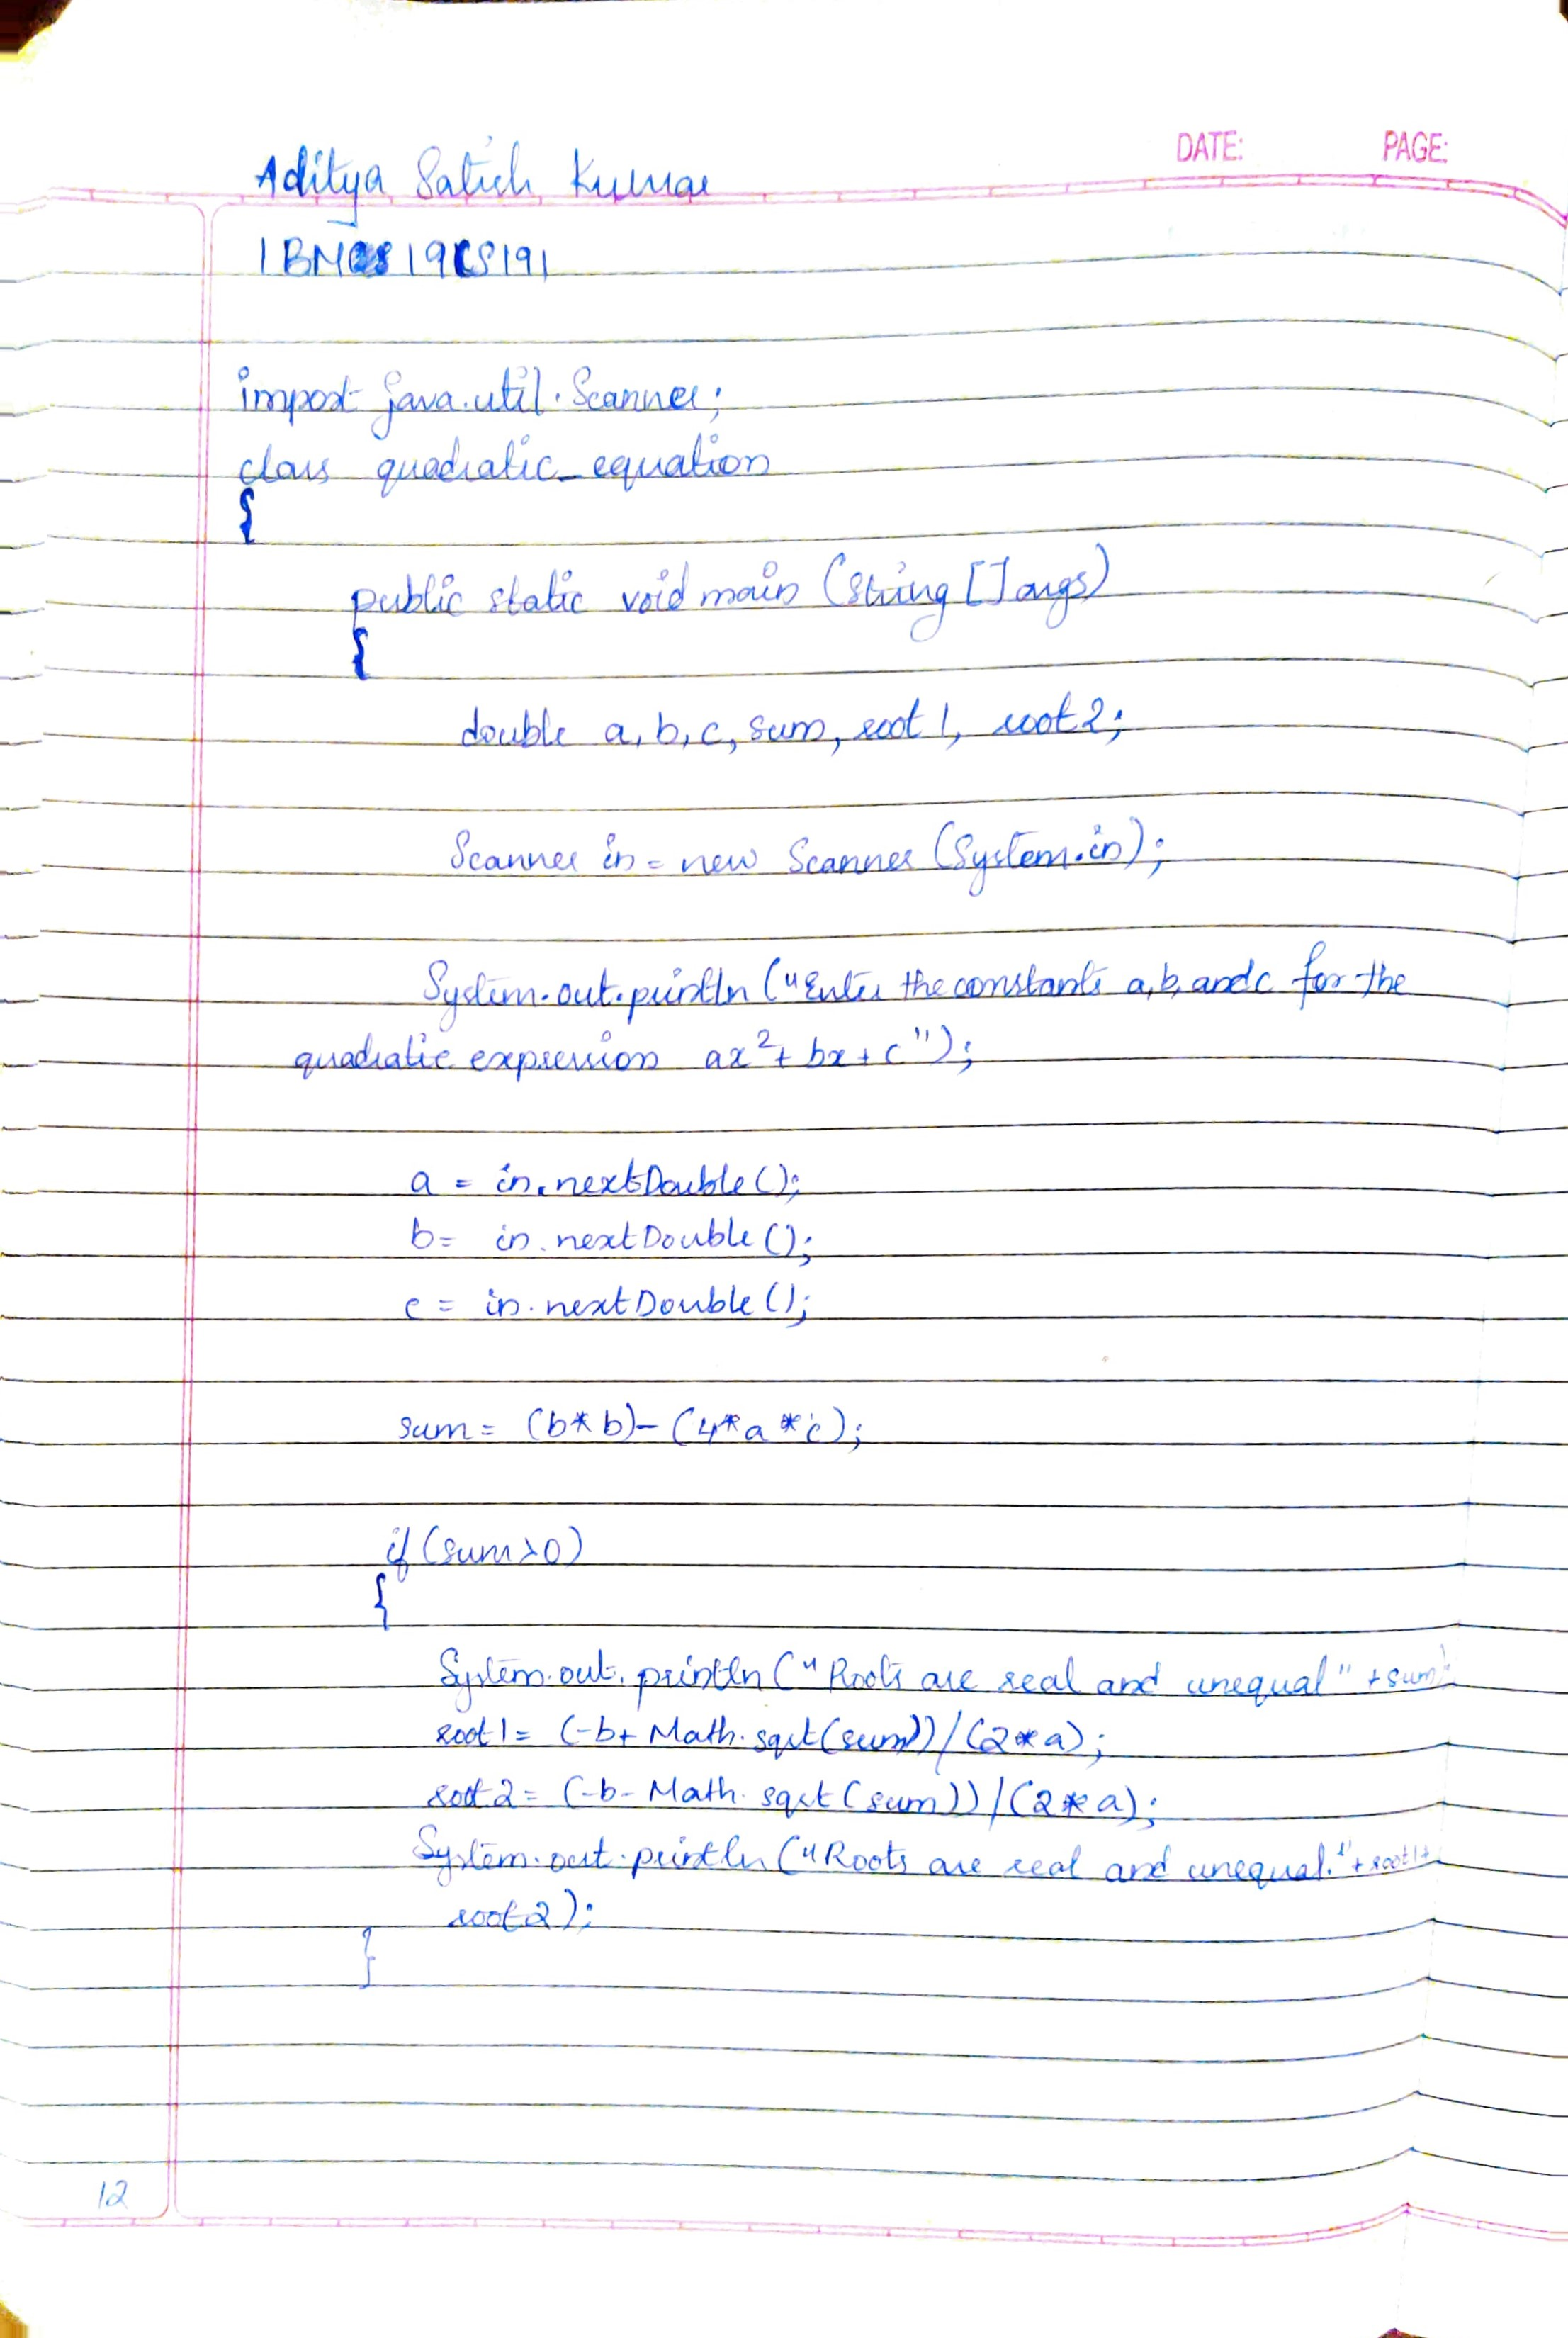 DATE: PAGE:
Aditya Satish Kumar
1BM19CS191
import java.util.Scanner;
class quadratic_equation
{
public static void main (String [] args)
{
double a, b, c, sum, root 1, root 2;
Scanner in = new Scanner (System.in);
System.out.println ("Enter the constants a, b, and c for the
quadratic expression ax²+ bx + c");
a = in.nextDouble ();
b = in.nextDouble ();
c = in.nextDouble ();
sum = (b*b)-(4*a*c);
if (sum>0)
{
System.out.println ("Roots are real and unequal" +sum);
root1= (-b+ Math.sqrt(sum))/(2*a);
root2= (-b- Math.sqrt(sum))/(2*a);
System.out.println ("Roots are real and unequal." + root1+
root2);
}
12